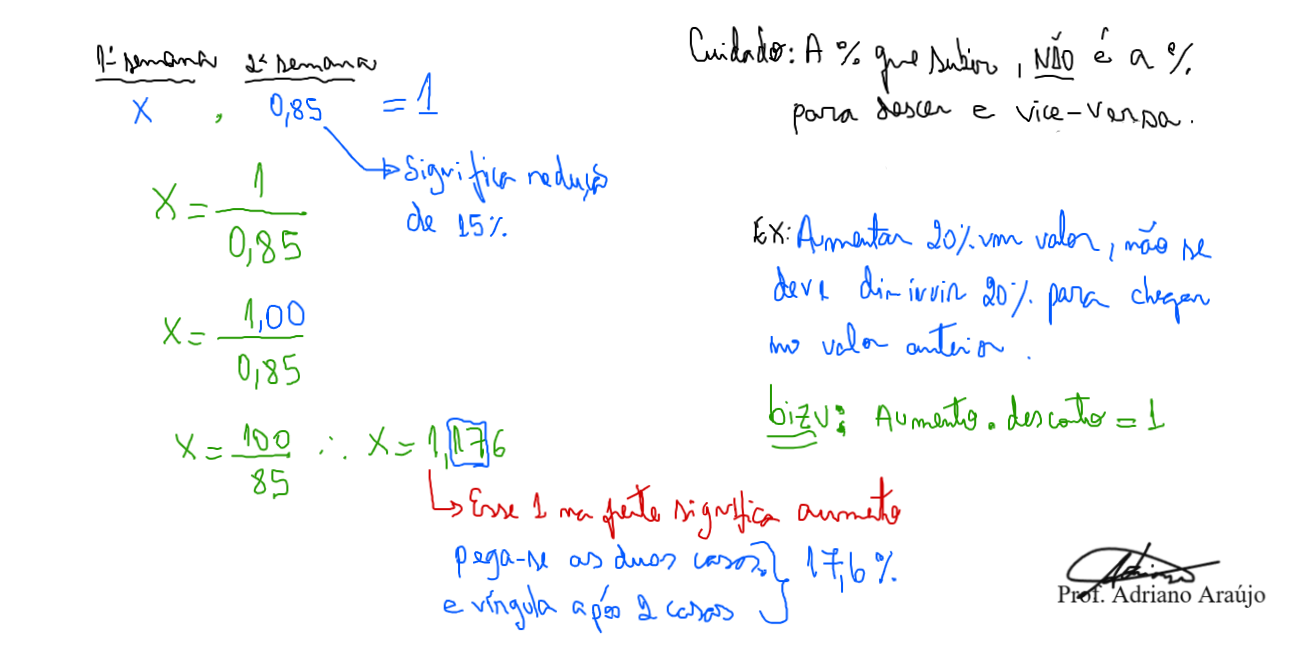 1ª semana 2ª semana
X . 0,85 = 1
Significa redução
de 15%.
X = 1
0,85
X = 1,00
0,85
X = 100 ∴ X = 1,176
85
Esse 1 na frente significa aumento
pega-se as duas casas } 17,6%
e vírgula após 2 casas
Cuidado: A % que subir, NÃO é a %
para descer e vice-versa.
EX: Aumentar 20% um valor, não se
deve diminuir 20% para chegar
no valor anterior.
bizu: Aumento . desconto = 1
Prof. Adriano Araújo